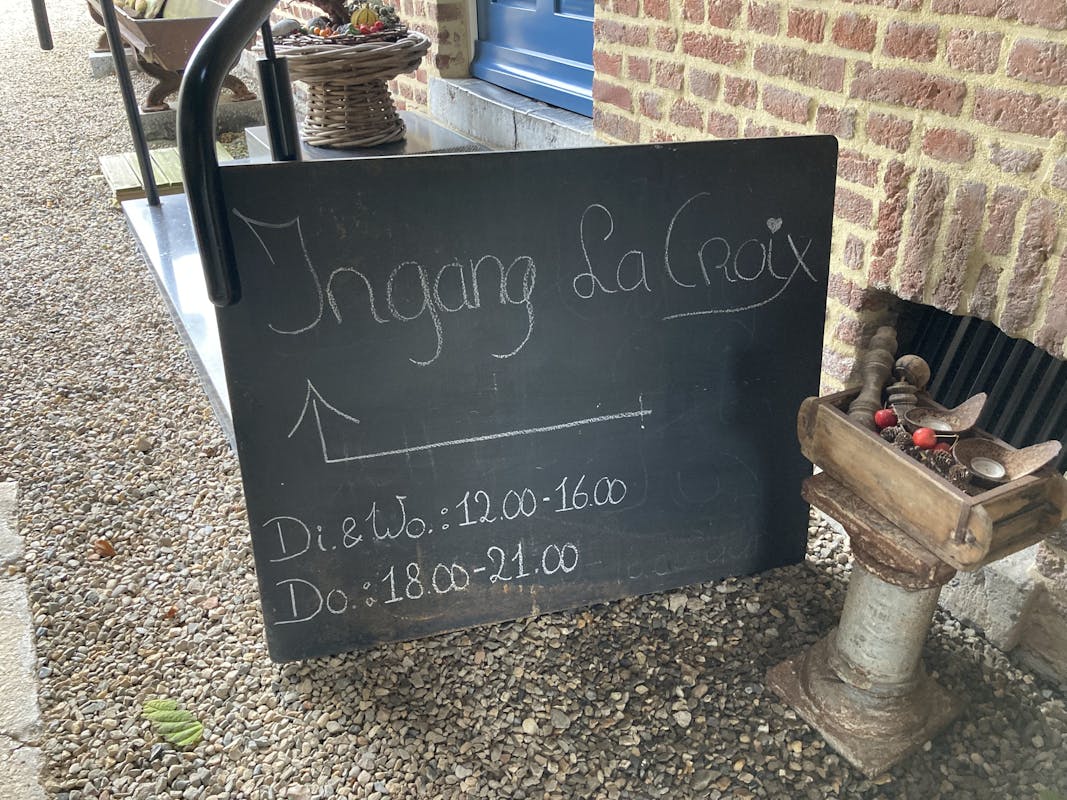 Ingang La Croix
Di. & Wo.: 12.00-16.00
Do.: 18.00-21.00